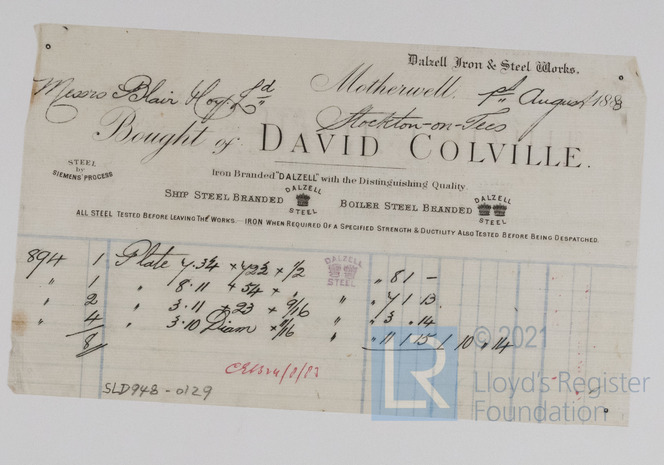 Dalzell Iron & Steel Works.
Motherwell. 1st August 1883
Messrs Blair & Coy Ld
Stockton-on-Tees
Bought of DAVID COLVILLE.
STEEL by SIEMENS' PROCESS
Iron Branded "DALZELL" with the Distinguishing Quality
SHIP STEEL BRANDED DALZELL STEEL BOILER STEEL BRANDED DALZELL STEEL
ALL STEEL TESTED BEFORE LEAVING THE WORKS. IRON WHEN REQUIRED OF A SPECIFIED STRENGTH & DUCTILITY ALSO TESTED BEFORE BEING DESPATCHED.
894 1 Plate 7.3¼ × 42½ × 1/2 DALZELL STEEL " 8 1 -
" 1 " 8.11 × 54 × " " " 7 1 13
" 2 " 3.11 × 23 × 9/16 " " 3 . 14
" 4 " 3.10 Diam × 9/16 " " 11 1 15 / 10 " 14
8
SLD948-0129
© 2021
LR
Lloyd's Register
Foundation